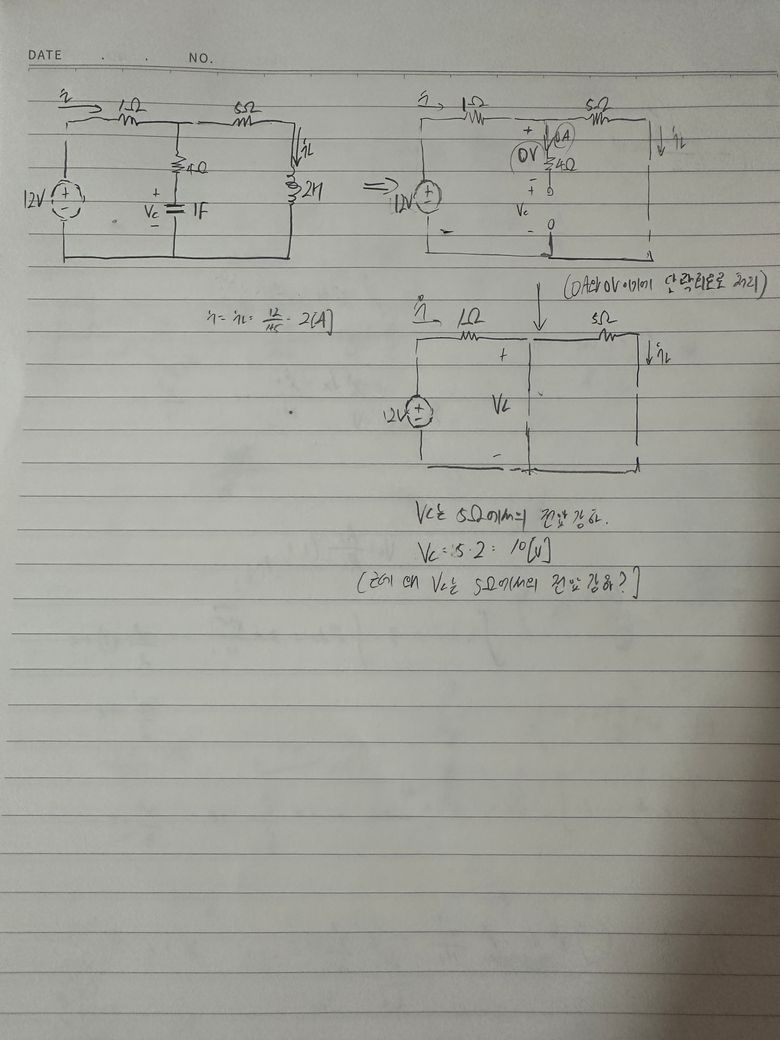 DATE . . NO.
i 1Ω 5Ω
iL
4Ω
12V + -
+ Vc - 1F
2H
i 1Ω 5Ω
+ 0V - 0A 4Ω
iL
12V + -
+ Vc -
(0A와 0V이기에 단락회로로 처리)
i = iL = 12/1+5 = 2[A]
i 1Ω 5Ω
iL
12V + -
+ Vc -
Vc는 5Ω에서의 전압강하.
Vc = 5·2 = 10[V]
(근데 왜 Vc는 5Ω에서의 전압강하?]